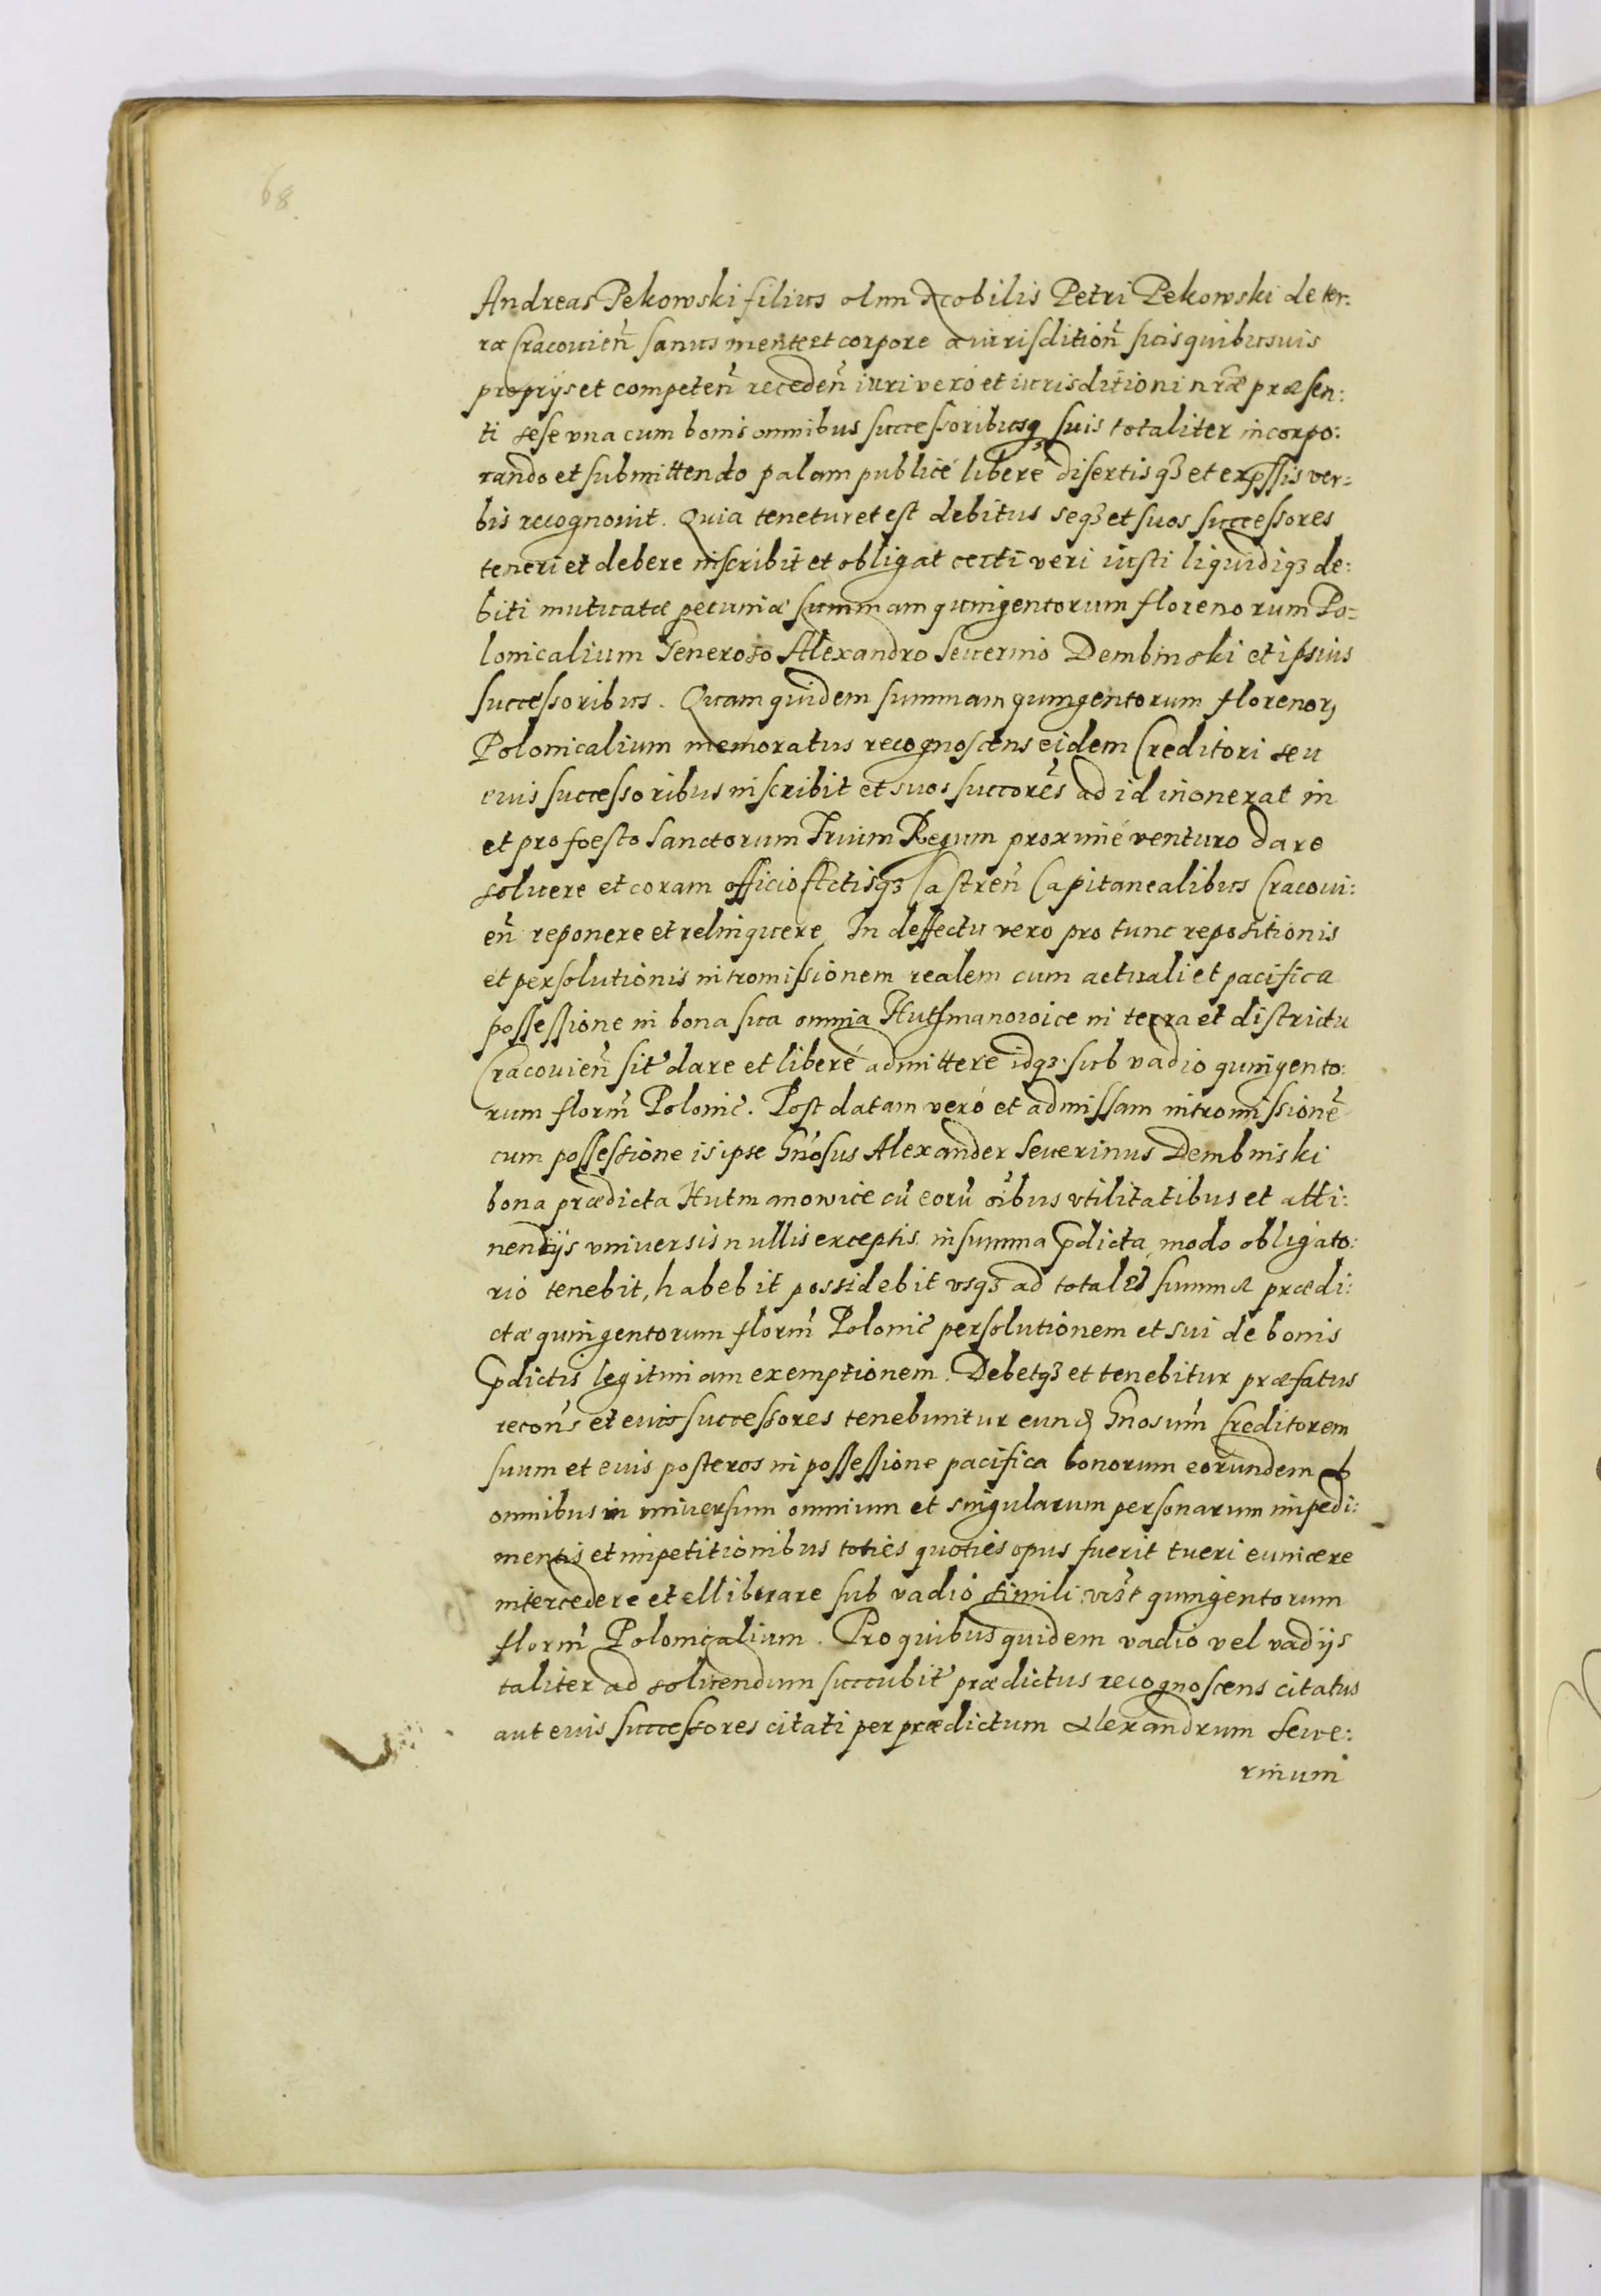 68
Andreas Pekowski filius olim Nobilis Petri Pekowski de ter:
ræ Cracovień sanus mente et corpore a iurisdition̄ suis quibusuis
proprijs et competen̄ receden̄ iuri vero et iurisditioni nr̄æ præsen:
ti sese vna cum bonis omnibus successoribusq₃ suis totaliter incorpo:
rando et submittendo palam publicé liberé disertisq₃ et exp̄ssis ver:
bis recognouit. Quia tenetur et est debitus seq₃ et suos successores
teneri et debere inscribit et obligat certi veri iusti liquidiq₃ de:
biti mutuatæ pecuniæ summam quingentorum florenorum Po=
lonicalium Generoso Alexandro Seuerino Dembinski et ipsius
successoribus. Quam quidem summam quingentorum florenor₃
Polonicalium memoratus recognoscens eidem Creditori seu
euis successoribus inscribit et suos succorēs ad id inonerat in
et pro foesto Sanctorum Trium Regum proximé venturo dare
soluere et coram officio Actisq₃ Castren̄ Capitanealibus Cracoui:
en̄ reponere et relinquere, In deffectu vero pro tunc repositionis
et persolutionis intromissionem realem cum actuali et pacifica
possessione in bona sua omnia Hutſmanowice in terra et districtu
Cracouien̄ sit̄ dare et liberé admittere idq₃ sub vadio quingento:
rum florm̄ Polonic̄. Post datam veró et admissam intromissionē
cum possessione is ipse Gn̄osus Alexander Seuerinus Dembinski
bona prædicta Hutmanowice cū eorū oībus vtilitatibus et atti:
nentijs vniuersis nullis exceptis in summa p̄dicta, modo obligato:
rio tenebit, habebit possidebit vsq₃ ad totalē summæ prædi:
ctæ quingentorum florm̄ Polonic̄ persolutionem et sui de bonis
p̄dictis legitimam exemptionem. Debetq₃ et tenebitur præfatus
recon̄s et euis successores tenebuntur eund̄ Gn̄osum̄ Creditorem
suum et euis posteros in possessione pacifica bonorum eorundem ab
omnibus in vniuersum omnium et singularum personarum impedi:
mentis et impetitionibus toties quoties opus fuerit tueri euincere
intercedere et elliberare sub vadio simili vr̄st quingentorum
florm̄ Polonicalium. Pro quibus quidem vadio vel vadijs
taliter ad soluendum succubit̄ prædictus recognoscens citatus
aut euis successores citati per prædictum Alexandrum Seue:
rinum